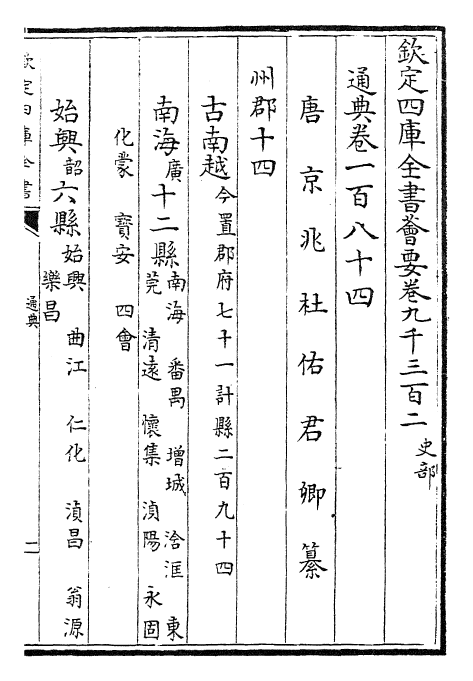 欽定四庫全書薈要卷九千三百二 史部
通典卷一百八十四
唐京兆杜佑君卿纂
州郡十四
古南越今置郡府七十一計縣二百九十四
南海廣十二縣南海 番禺 增城 浛洭 東
莞 清遠 懷集 湞陽 永固
化蒙 寶安 四會
始興韶六縣始興 曲江 仁化 湞昌 翁源
樂昌
欽定四庫全書
通典
二